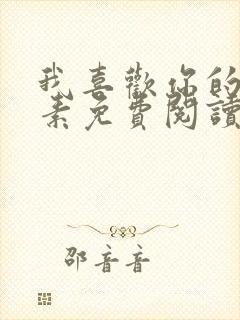 我喜歡你的
素免費閱讀
邵音音